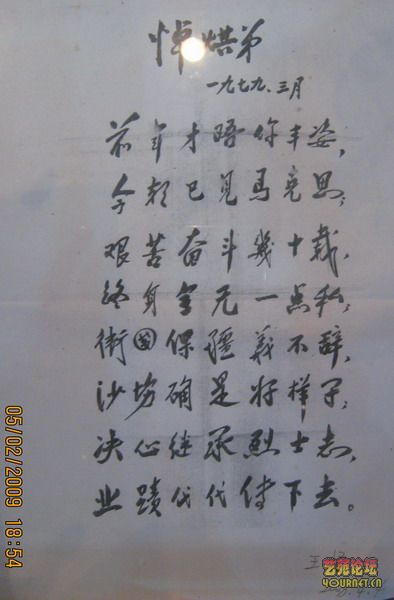 悼烘弟
一九七九、三月
前年才晤你丰姿，
今朝已见马克思；
艰苦奋斗幾十载，
终身全无一点私；
衛国保疆義不辞，
沙场确是好样子；
决心继承烈士志，
业蹟代代传下去。
王
05/02/2009 18:54
艺苑论坛
YOURNET.CN